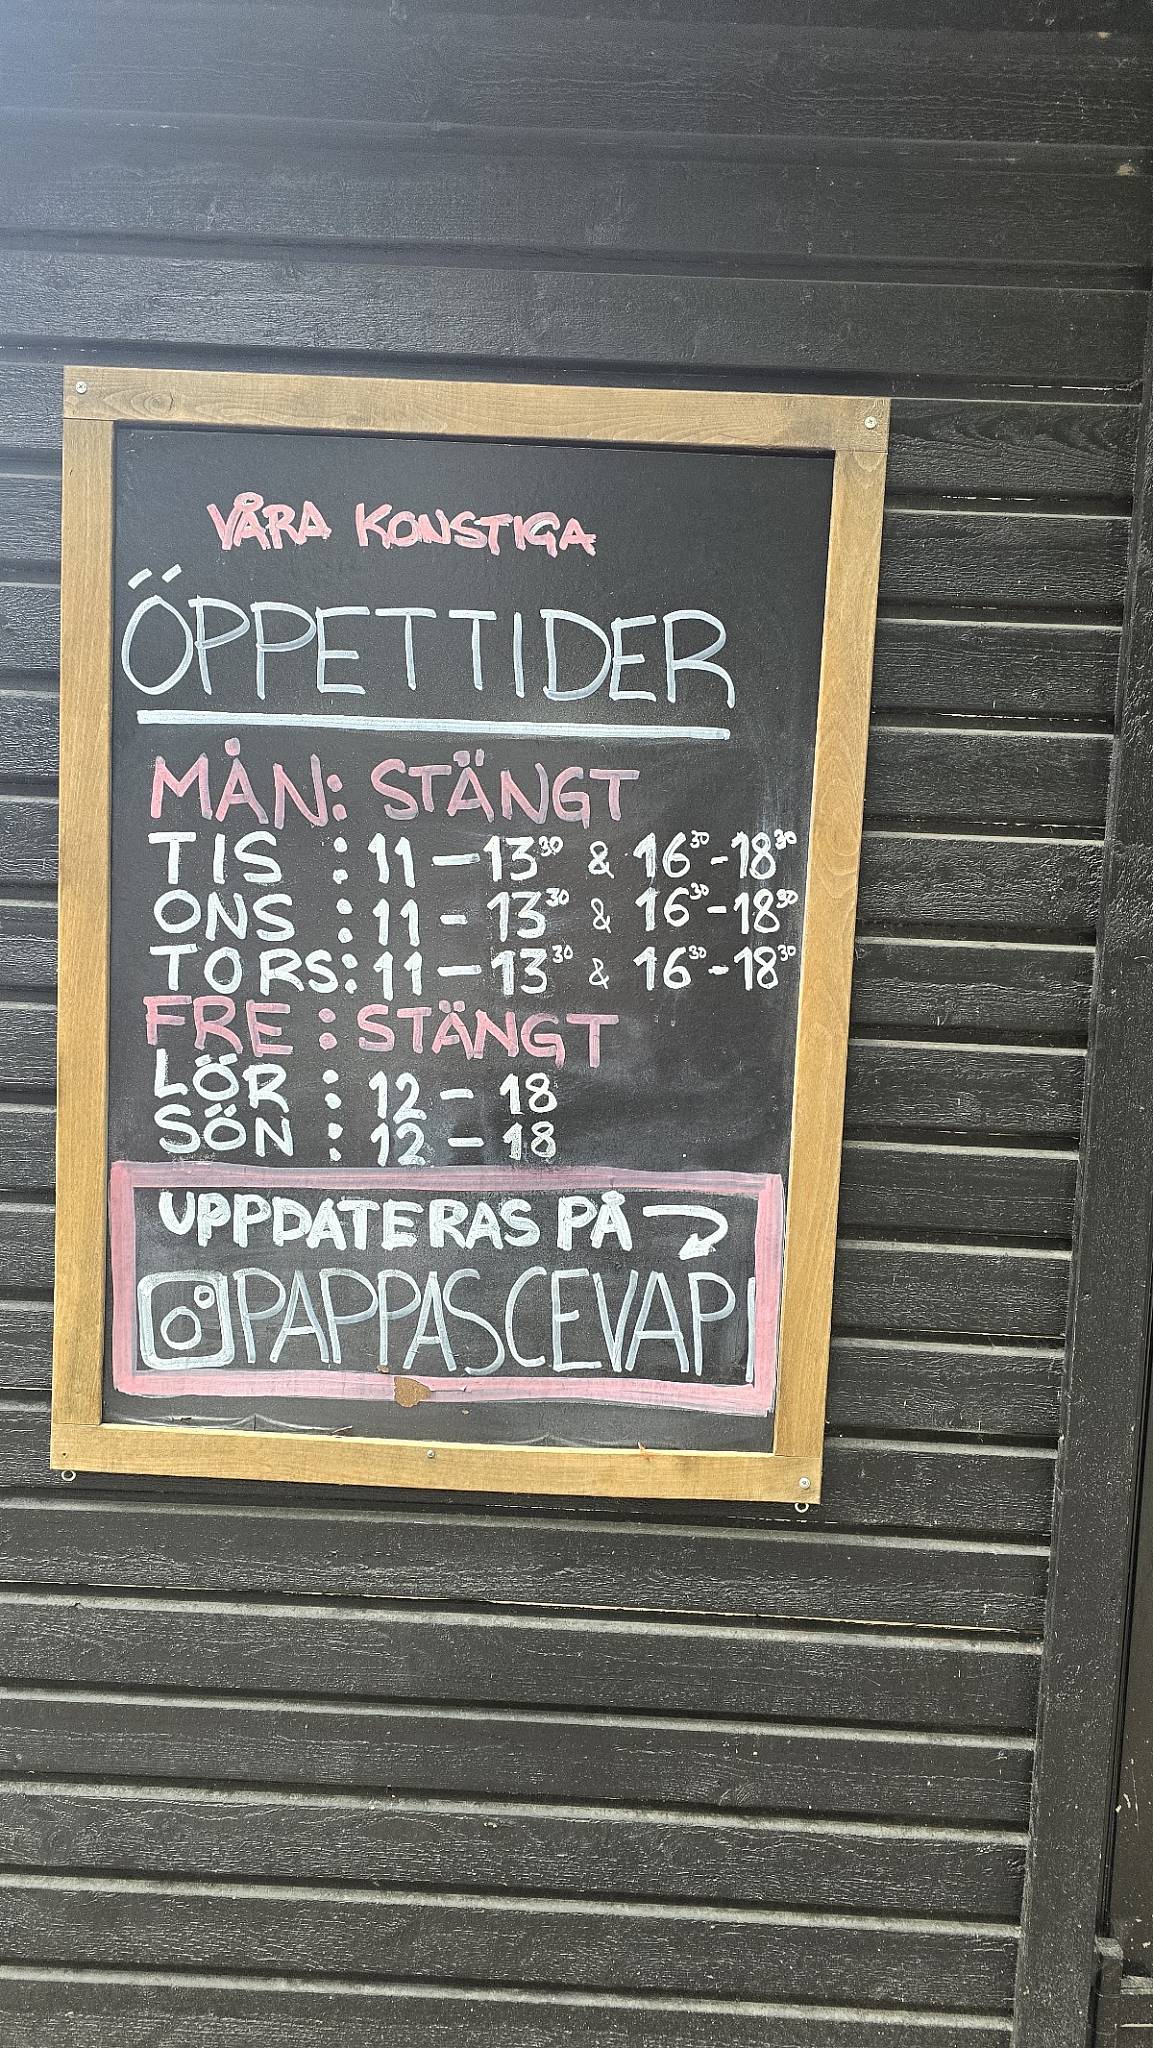 VÅRA KONSTIGA
ÖPPETTIDER
MÅN: STÄNGT
TIS : 11 – 13³⁰ & 16³⁰-18³⁰
ONS : 11 - 13³⁰ & 16³⁰-18³⁰
TORS: 11 – 13³⁰ & 16³⁰-18³⁰
FRE : STÄNGT
LÖR : 12 - 18
SÖN : 12 – 18
UPPDATERAS PÅ
PAPPASCEVAPI